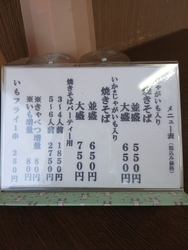 メニュー表(税込み価格)
じゃがいも入り
焼きそば
並盛 550円
大盛 650円
いか・じゃがいも入り
焼きそば
並盛 650円
大盛 750円
焼きそばパーティー用
3~4人前 1850円
5~6人前 2750円
※きゃべつ増量 80円
※いも増量 80円
いもフライ一串 250円